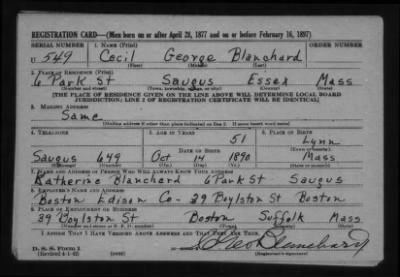 REGISTRATION CARD—(Men born on or after April 28, 1877 and on or before February 16, 1897)
SERIAL NUMBER 1. NAME (Print) ORDER NUMBER
U 549 Cecil George Blanchard
(First) (Middle) (Last)
2. PLACE OF RESIDENCE (Print)
6 Park St Saugus Essex Mass
(Number and street) (Town, township, village, or city) (County) (State)
[THE PLACE OF RESIDENCE GIVEN ON THE LINE ABOVE WILL DETERMINE LOCAL BOARD
JURISDICTION; LINE 2 OF REGISTRATION CERTIFICATE WILL BE IDENTICAL]
3. MAILING ADDRESS
Same
[Mailing address if other than place indicated on line 2. If same insert word same]
4. TELEPHONE 5. AGE IN YEARS 6. PLACE OF BIRTH
51 Lynn
DATE OF BIRTH (Town or county)
Saugus 649 Oct 14 1890 Mass
(Exchange) (Number) (Mo.) (Day) (Yr.) (State or country)
7. NAME AND ADDRESS OF PERSON WHO WILL ALWAYS KNOW YOUR ADDRESS
Katherine Blanchard 6 Park St Saugus
8. EMPLOYER'S NAME AND ADDRESS
Boston Edison Co - 39 Boylston St Boston
9. PLACE OF EMPLOYMENT OR BUSINESS
39 Boylston St Boston Suffolk Mass
(Number and street or R. F. D. number) (Town) (County) (State)
I AFFIRM THAT I HAVE VERIFIED ABOVE ANSWERS AND THAT THEY ARE TRUE.
D. S. S. Form 1
(Revised 4-1-42) (over) Blanchard